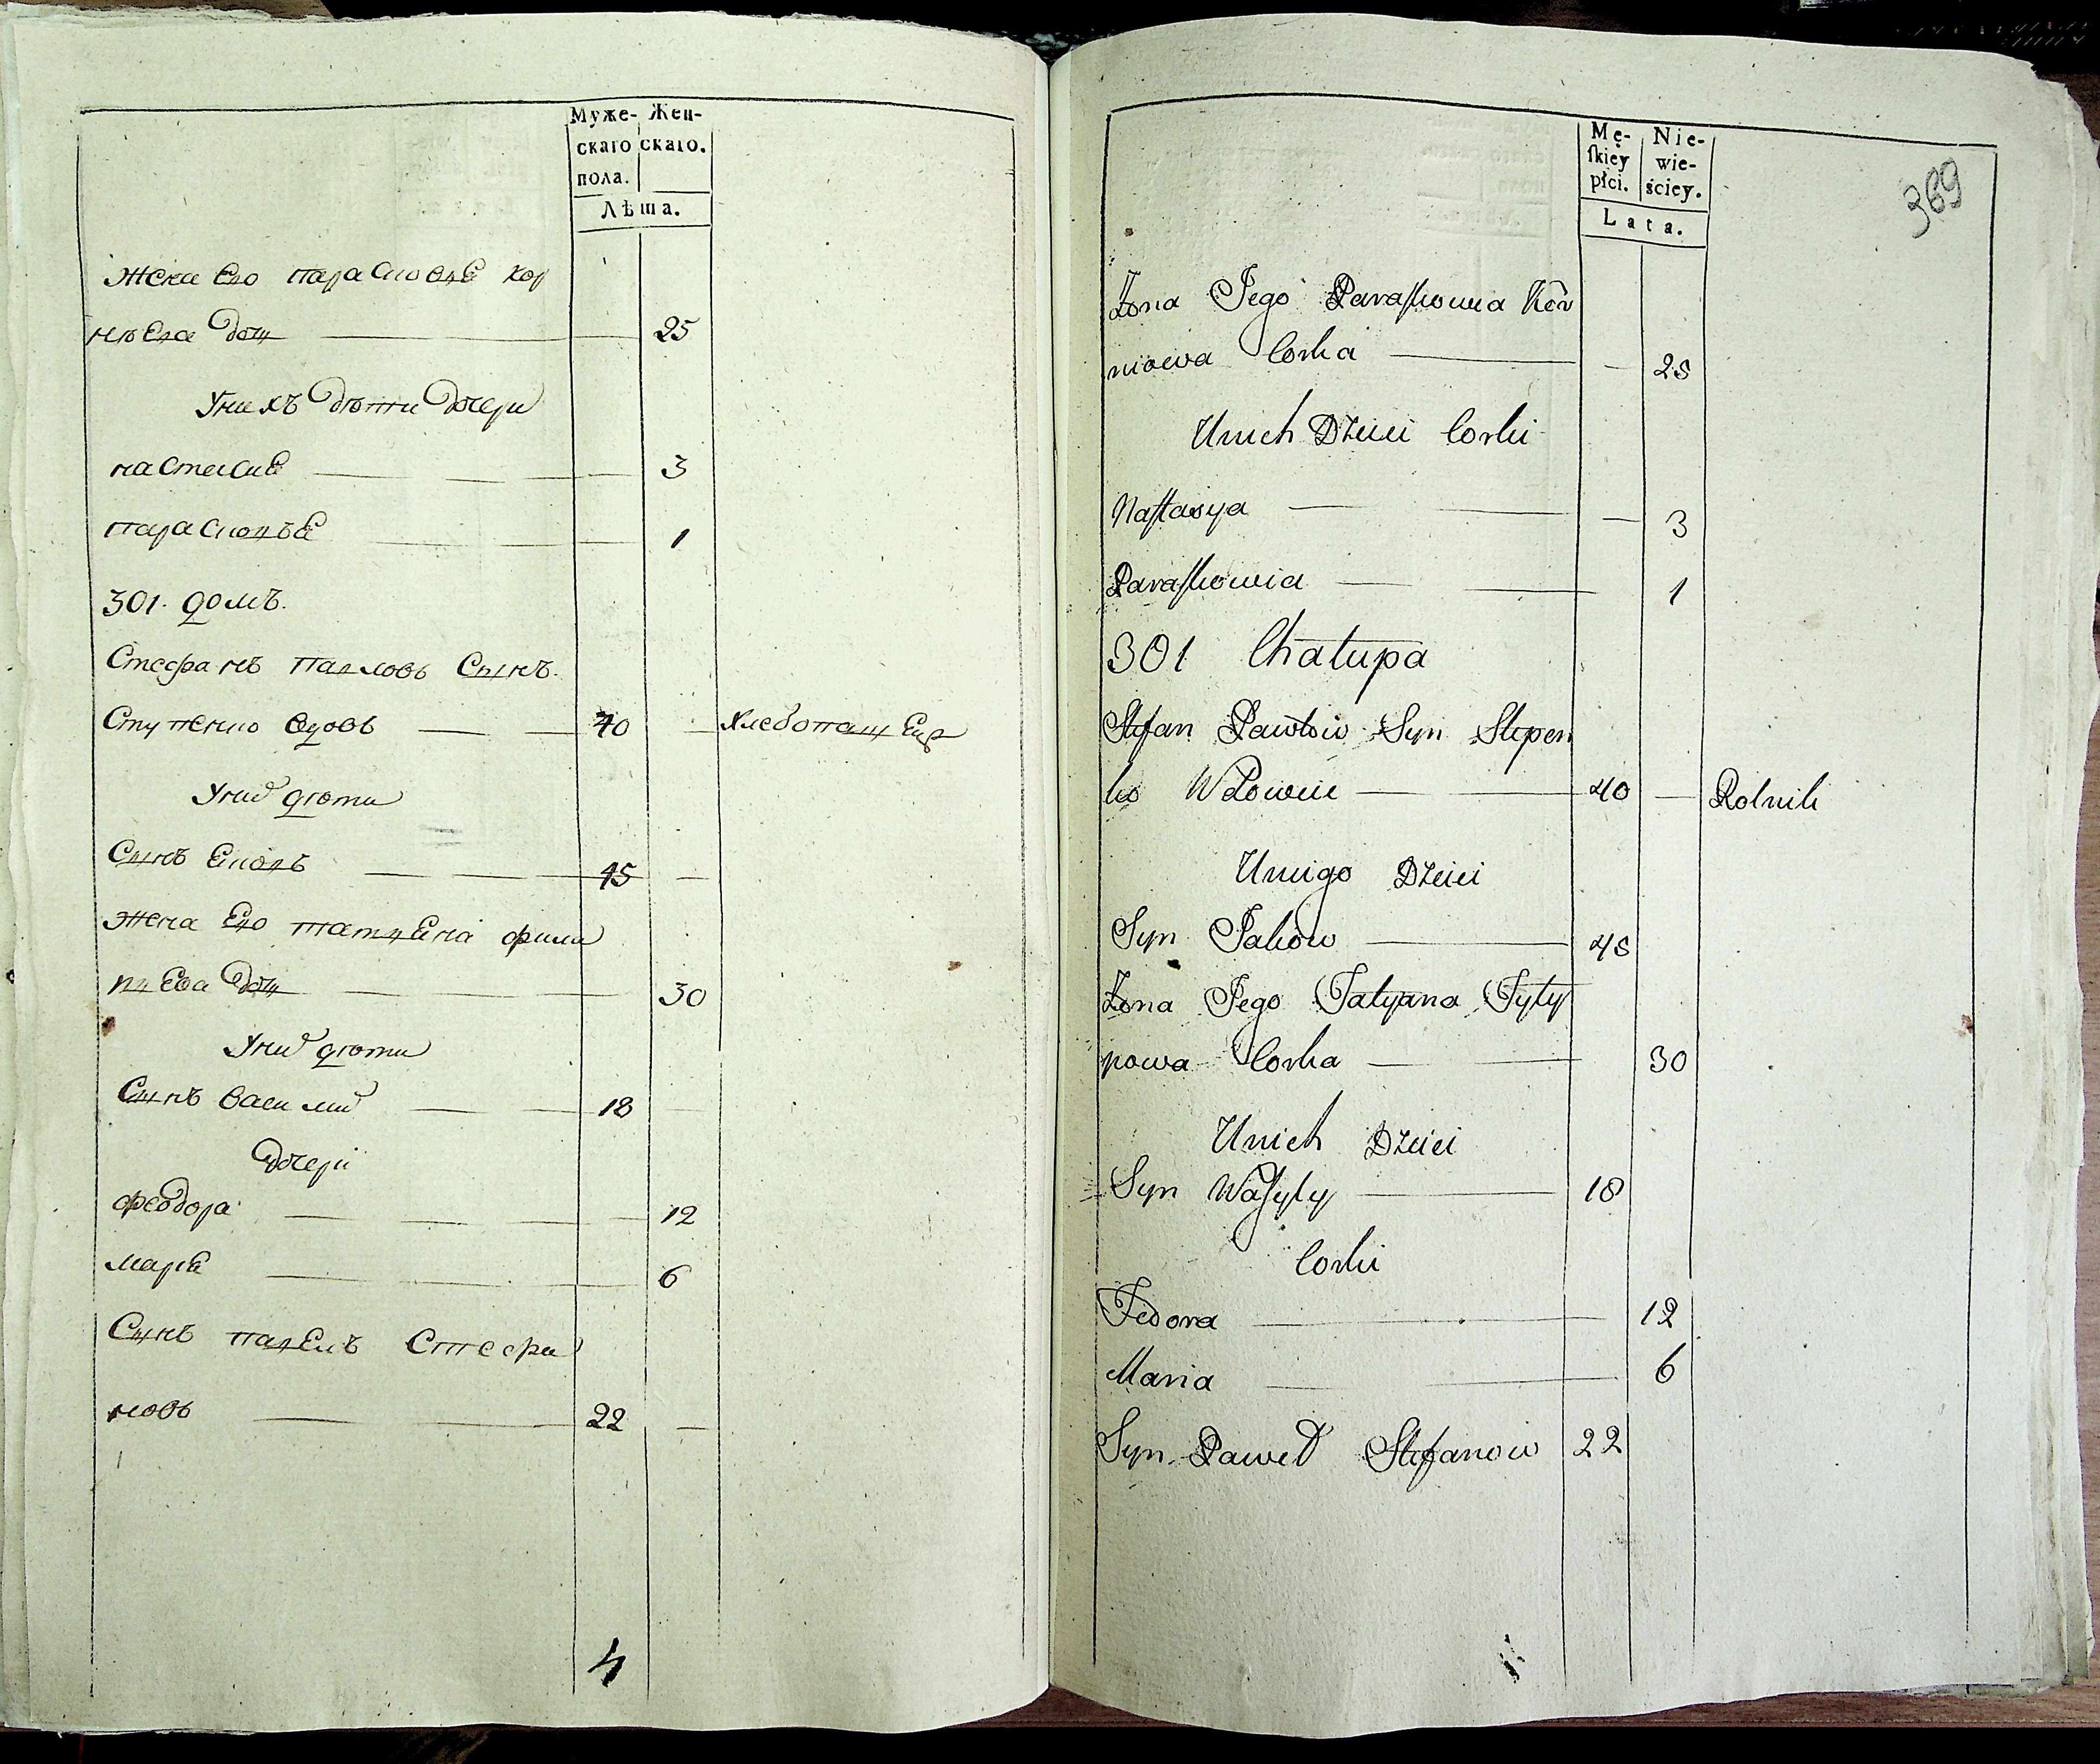 Муже- Жен-
скаго скаго.
пола.
Лѣта.
Жена Его парасковѣЕ кор
нѣева дощ 25
Унихъ дѣти дочери
настасиЕ 3
парасковъЕ 1
301. домъ.
Стефанъ павловъ Сынъ
Ступенко вдовъ 40 хлебопащец
Унио дѣти
Сынъ Ековъ 45
жена Его татиЕна фили
пиЕва дощ 30
Унио дѣти
Сынъ васили 18
дочери
феодора 12
мариЕ 6
Сынъ павЕлъ Стефа
новъ 22
4
Mę- Nie-
skiey wie-
płci. ściey.
Lata.
369
Żona Jego Paraskowia Kor
niowa Corka 25
Unich Dzieci Corki
Nastasya 3
Paraskowia 1
301 Chałupa
Stefan Pawłow Syn Stepen
ko Wdowiec 40 Rolnik
Uniego Dzieci
Syn Jakow 45
Żona Jego Tatyana Fyly
powa Corka 30
Unich Dzieci
Syn Wasyly 18
Corki
Fedora 12
Maria 6
Syn Paweł Stefanow 22